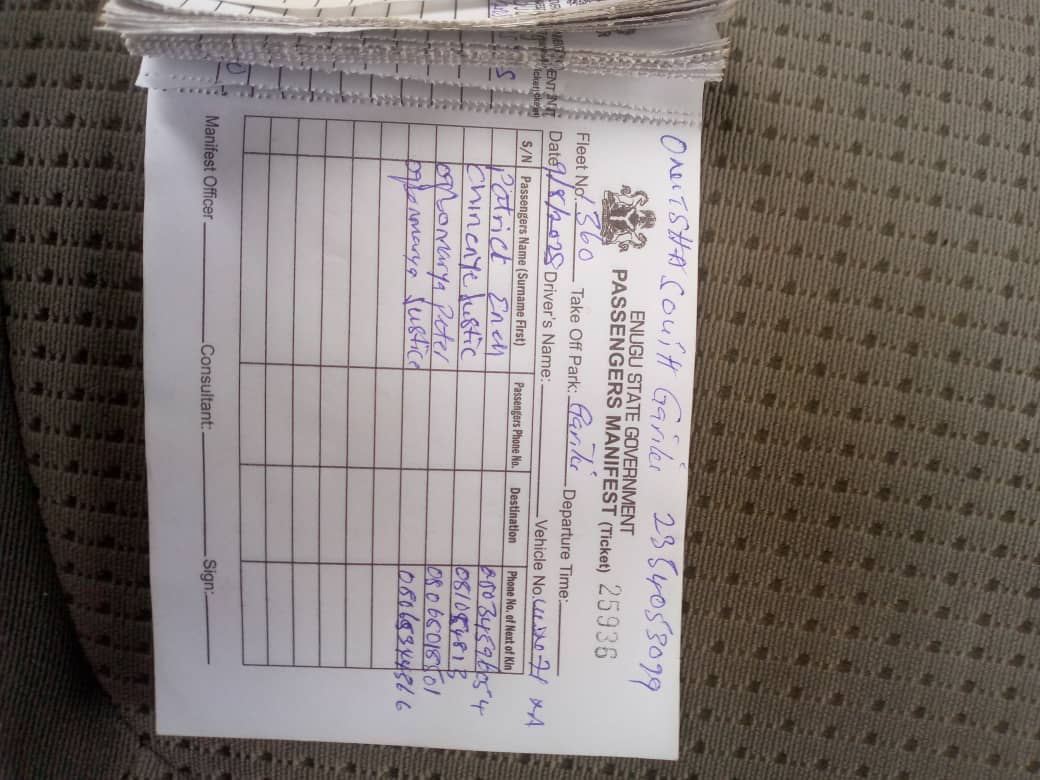 ONITSHA SOUTH Gariki 2354053099
ENUGU STATE GOVERNMENT
PASSENGERS MANIFEST (Ticket) 25936
Fleet No. 1360 Take Off Park: Gariki Departure Time:
Date 9/8/2025 Driver's Name: Vehicle No.
S/N Passengers Name (Surname First) Passengers Phone No. Destination Phone No. of Next of Kin
Patrick Eneh 08034596054
Chinenye Justic
Ogbonnaya Peter 08065018501
Ogbonnaya Justice
Manifest Officer Consultant: Sign: